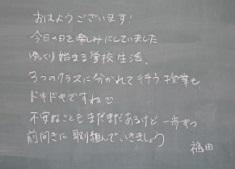 おはようございます!
今日の日を楽しみにしていました
ゆっくり始まる学校生活、
3つのクラスに分かれて行う授業も
ドキドキですね
不安なこともまだまだあるけど一歩ずつ
前向きに取り組んでいきましょう
福田